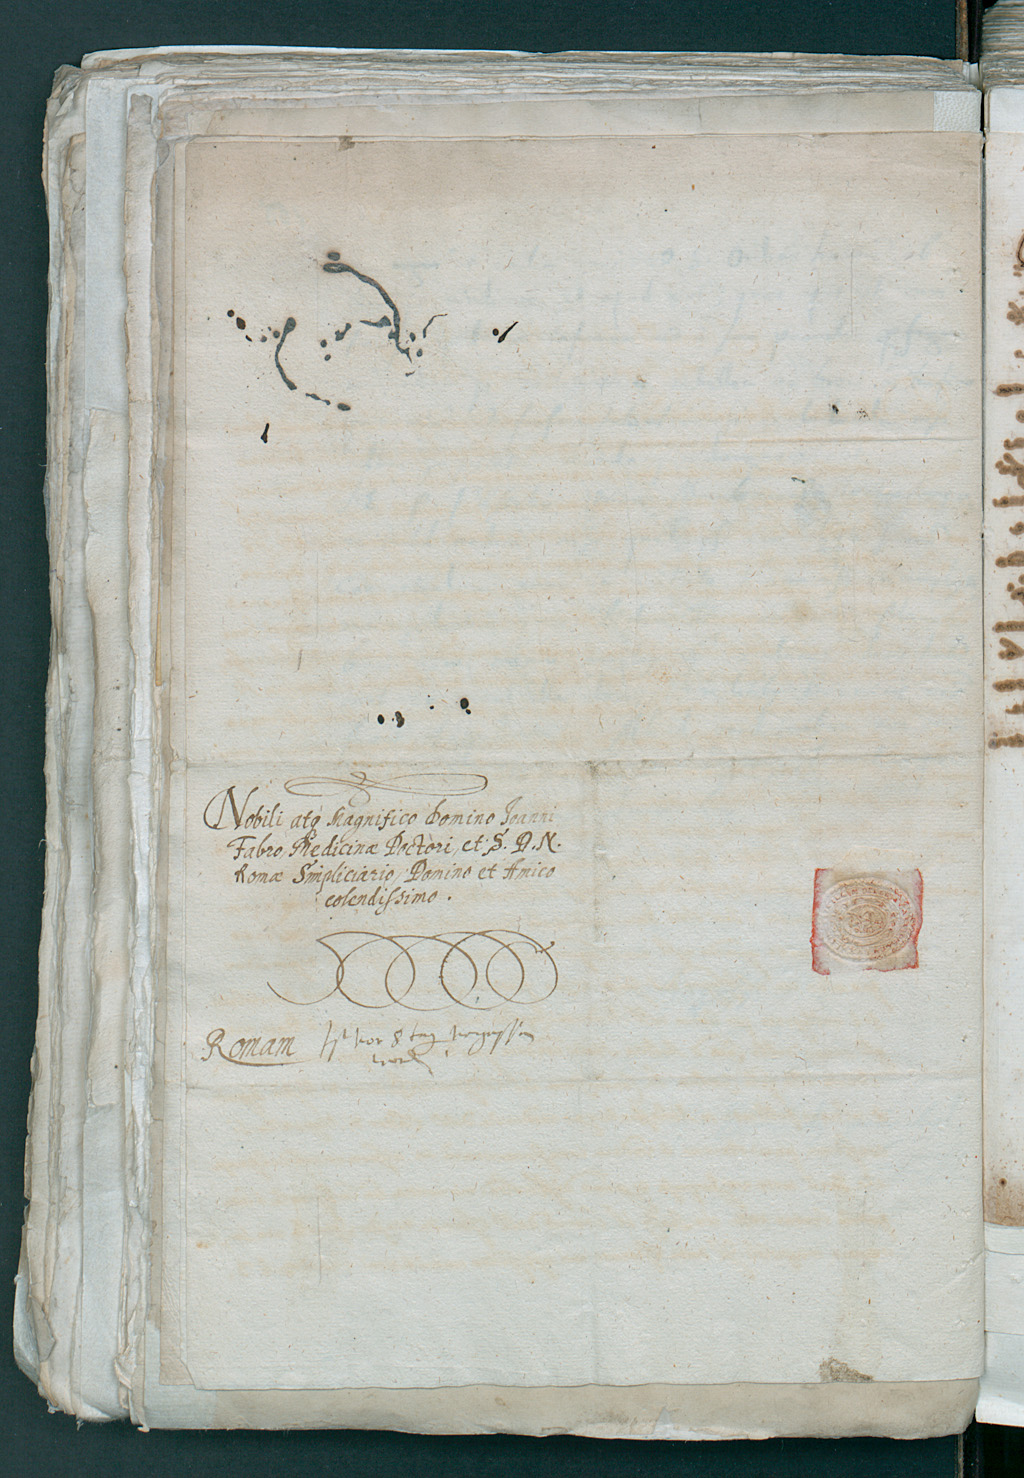 Nobili atq Magnifico Domino Joanni
Fabro Medicinæ Doctori et S. D. N.
Romæ Simpliciario Domino et Amico
colendissimo.
Romam